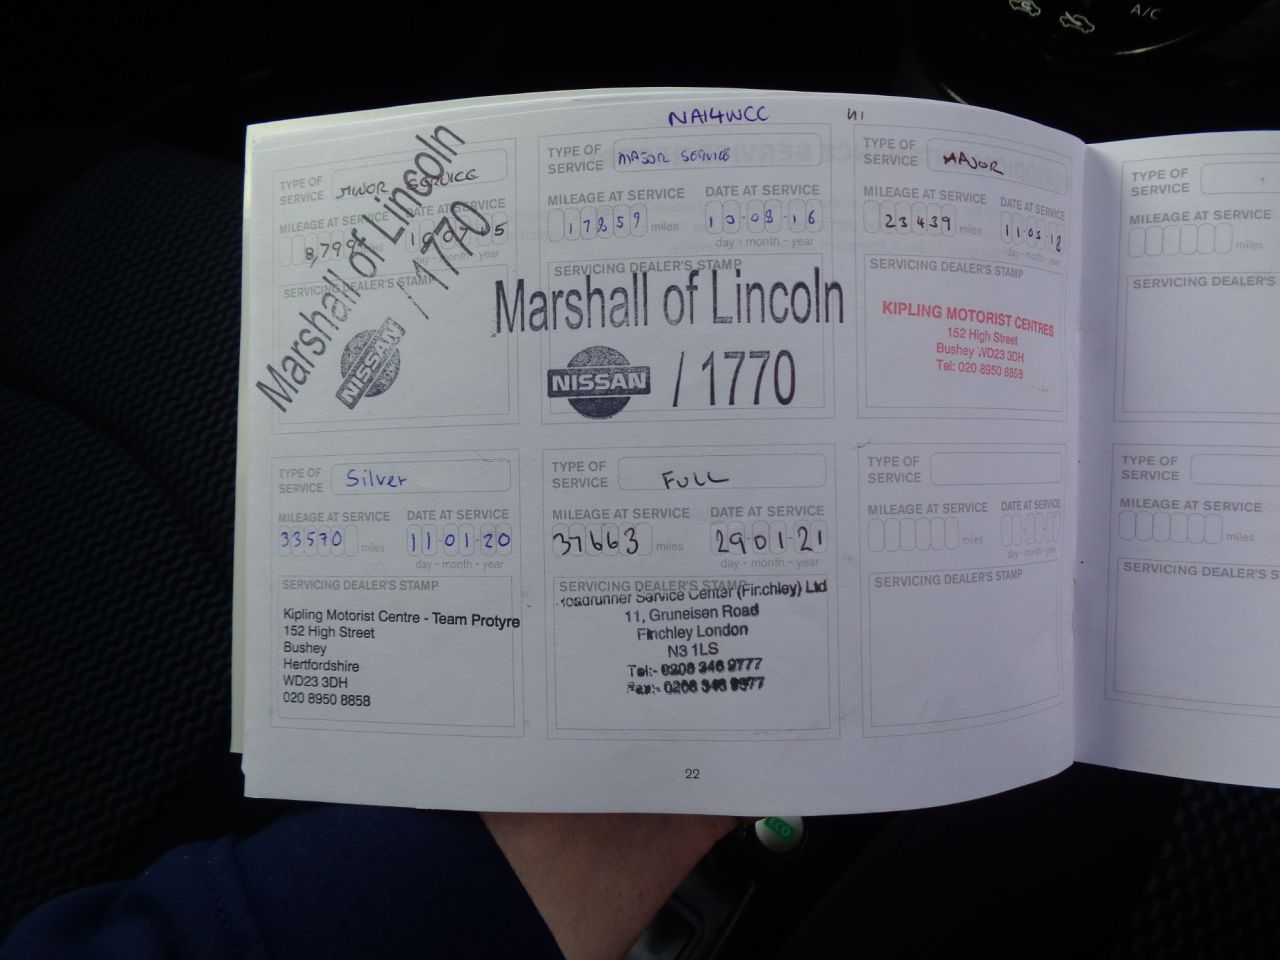 A/C
NA14WCC
TYPE OF SERVICE MINOR SERVICE
MILEAGE AT SERVICE DATE AT SERVICE
8,799 miles
day - month - year
SERVICING DEALER'S STAMP
Marshall of Lincoln
NISSAN / 1770
TYPE OF SERVICE MAJOR SERVICE
MILEAGE AT SERVICE DATE AT SERVICE
17859 miles 10-08-16
day - month - year
SERVICING DEALER'S STAMP
Marshall of Lincoln
NISSAN / 1770
TYPE OF SERVICE MAJOR
MILEAGE AT SERVICE DATE AT SERVICE
23439 miles 11-05-18
day - month - year
SERVICING DEALER'S STAMP
KIPLING MOTORIST CENTRES
152 High Street
Bushey WD23 3DH
Tel: 020 8950 8858
TYPE OF SERVICE Silver
MILEAGE AT SERVICE DATE AT SERVICE
33570 miles 11-01-20
day - month - year
SERVICING DEALER'S STAMP
Kipling Motorist Centre - Team Protyre
152 High Street
Bushey
Hertfordshire
WD23 3DH
020 8950 8858
TYPE OF SERVICE FULL
MILEAGE AT SERVICE DATE AT SERVICE
37663 miles 29-01-21
day - month - year
SERVICING DEALER'S STAMP
Roadrunner Service Center (Finchley) Ltd
11, Gruneisen Road
Finchley London
N3 1LS
Tel:- 0208 346 2777
Fax:- 0208 346 9377
TYPE OF SERVICE
MILEAGE AT SERVICE DATE AT SERVICE
miles
day - month - year
SERVICING DEALER'S STAMP
22
TYPE OF SERVICE
MILEAGE AT SERVICE
miles
SERVICING DEALER'S
TYPE OF SERVICE
MILEAGE AT SERVICE
miles
SERVICING DEALER'S
ECO